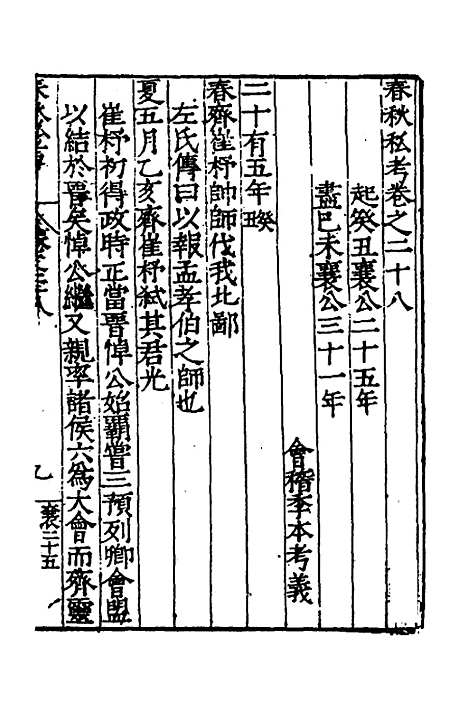 春秋私考卷之二十八
起癸丑襄公二十五年
盡己未襄公三十一年
會稽季本考義
二十有五年癸丑
春齊崔杼帥師伐我北鄙
左氏傳曰以報孟孝伯之師也
夏五月乙亥齊崔杼弒其君光
崔杼初得政時正當晉悼公始霸嘗三預列卿會盟
以結於晉矣悼公繼又親率諸侯六為大會而齊靈
襄二十五